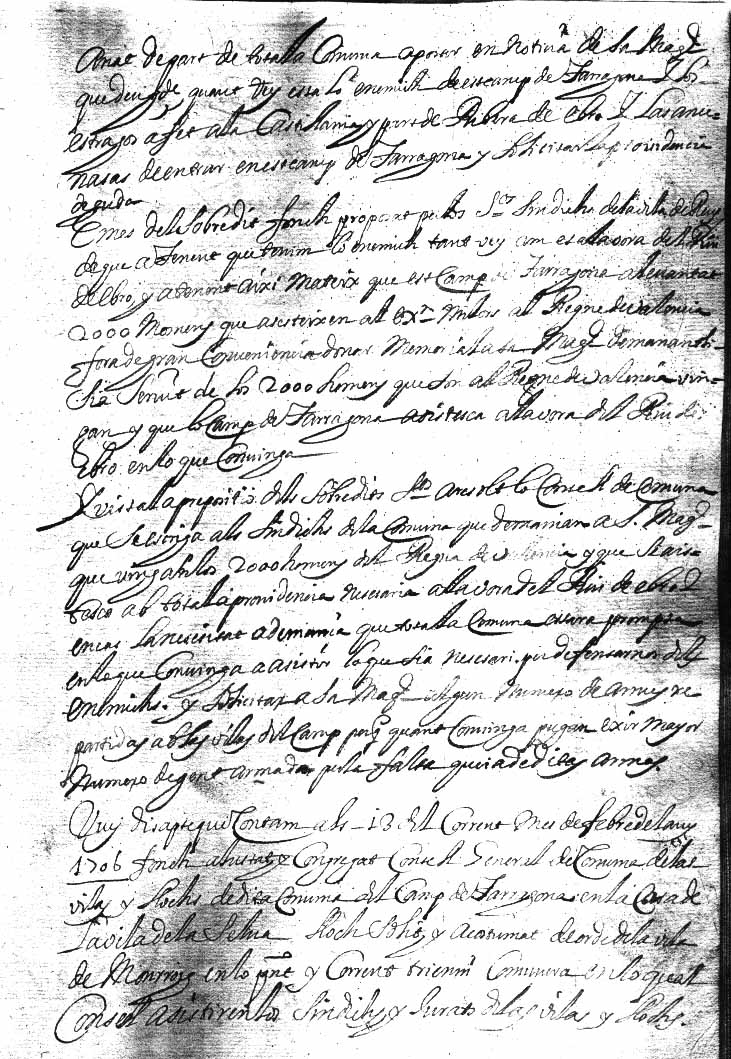 Anat de part de tota la Comuna a portar en noticia de Sa Magt.
que de quant vey esta lo enemich de est camp de Tarragona y los
estragos a fet a la Castellania y part de Ribera de Ebro y las ame-
nasas de entrar en est camp de Tarragona y solicitar la providencia
deguda
E mes dels sobredit fonch proposat per los Srs. Sindichs de la vila de Reus
de que a tenent que tenim lo enemich tant vey com es a la vora del Riu
de Ebro, y atenent aixi mateix que est Camp de Tarragona a llevantat
2000 homens que asisteixen al Regne de Valencia
fora de gran Conveniencia donar Memorial a sa Magt. demanantli
sia servit de los 2000 homens que son al Regne de Valencia vin-
gan y que lo Camp de Tarragona asistesca a la vora del Riu de
Ebro en lo que Convinga
Y vista la proposisio dels sobredits Srs. aresolt lo Consell de Comuna
que se escriga als Sindichs de la Comuna que demanian a S. Magt.
que vingan los 2000 homens del Regne de Valencia y que se asis-
tesca ab tota la providencia nesesaria a la vora del Riu de Ebro y
en cas la nesesitat a demania que tota la Comuna estara prompta
en lo que Convinga a asistir lo que sia nesesari per defensarnos dels
enemichs. y solicitar a Sa Magt. algun numero de armes re-
partidas ab las vilas del Camp perq quant Convinga pugan exir mayor
numero de gent armada per la falta que ia de ditas armes.
Vuy disapte que Contam als 13 del Corrent mes de febre del any
1706 fonch ajustat y Congregat Consell General de Comuna de las
vilas y llochs de dita Comuna del Camp de Tarragona en la Casa de
la vila de la Selva lloch solit y acostumat de orde de la vila
de Monroig en lo pnt. y Corrent trienni Comunera en lo qual
Consell asistiren los Sindichs y Jurats de las vilas y llochs.